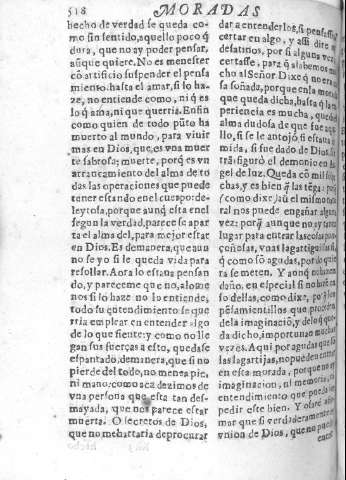 518 MORADAS
hecho de verdad se queda co-
mo sin sentido, aquello poco q̃
dura, que no ay poder pensar,
aũque quiere. No es menester
cõ artificio suspender el pensa
miento: hasta el amar, si lo ha-
ze, no entiende como, ni q̃ es
lo q̃ ama, ni que querria. Enfin
como quien de todo pũto ha
muerto al mundo, para viuir
mas en Dios, que es vna muer
te sabrosa; muerte, porq̃ es vn
arrancamiento del alma de to
das las operaciones que puede
tener estando en el cuerpo: de-
leytosa, porque aunq̃ esta en el
segun la verdad, parece se apar
ta el alma del, para mejor estar
en Dios. Es de manera, que aun
no se yo si le queda vida para
resollar. Aora lo estaua pensan
do, y pareceme que no, alome
nos si lo haze no lo entiende,
todo su entendimiento se que
rria emplear en entender algo
de lo que siente: y como no lle
gan sus fuerças a esto, quedase
espantado, de manera, que si no
pierde del todo, no menea pie,
ni mano, como aca dezimos de
vna persona que esta tan des-
mayada, que nos parece estar
muerta. O secretos de Dios,
que no me hartaria de procurar
dar a entenderlos, si pensasse
certar en algo, y assi dire
desatinos, por si alguna vez
certasse, para q̃ alabemos mu
cho al Señor. Dixe q̃ no era co
sa soñada, porque en la morada
que queda dicha, hasta q̃ la ex
periencia es mucha, queda el
alma dudosa de que fue aque
llo, si se le antojó, si estaua dor
mida, si fue dado de Dios, si se
trãsfiguró el demonio en An-
gel de luz. Queda cõ mil sospe
chas, y es bien q̃ las tẽga: porq̃
(como dixe) aũ el mismo natu
ral nos puede engañar alguna
vez: porq̃ aunque no ay tanto
lugar para entrar las cosas pon
çoñosas, vnas lagartijillas si,
q̃ como sõ agudas, por do quie
ra se meten. Y aunq̃ no hazen
daño, en especial si no hazẽ ca
so dellas, como dixe, porq̃ son
pẽsamientillos que proceden
de la imaginaciõ, y de lo q̃ que
da dicho, importunan muchas
vezes. Aqui por agudas que son
las lagartijas, no pueden entrar
en esta morada, porque no ay
imaginacion, ni memoria, ni
entendimiento que pueda im-
pedir este bien. Y osaré afir-
mar que si verdaderamente es
vnion de Dios, que no puede